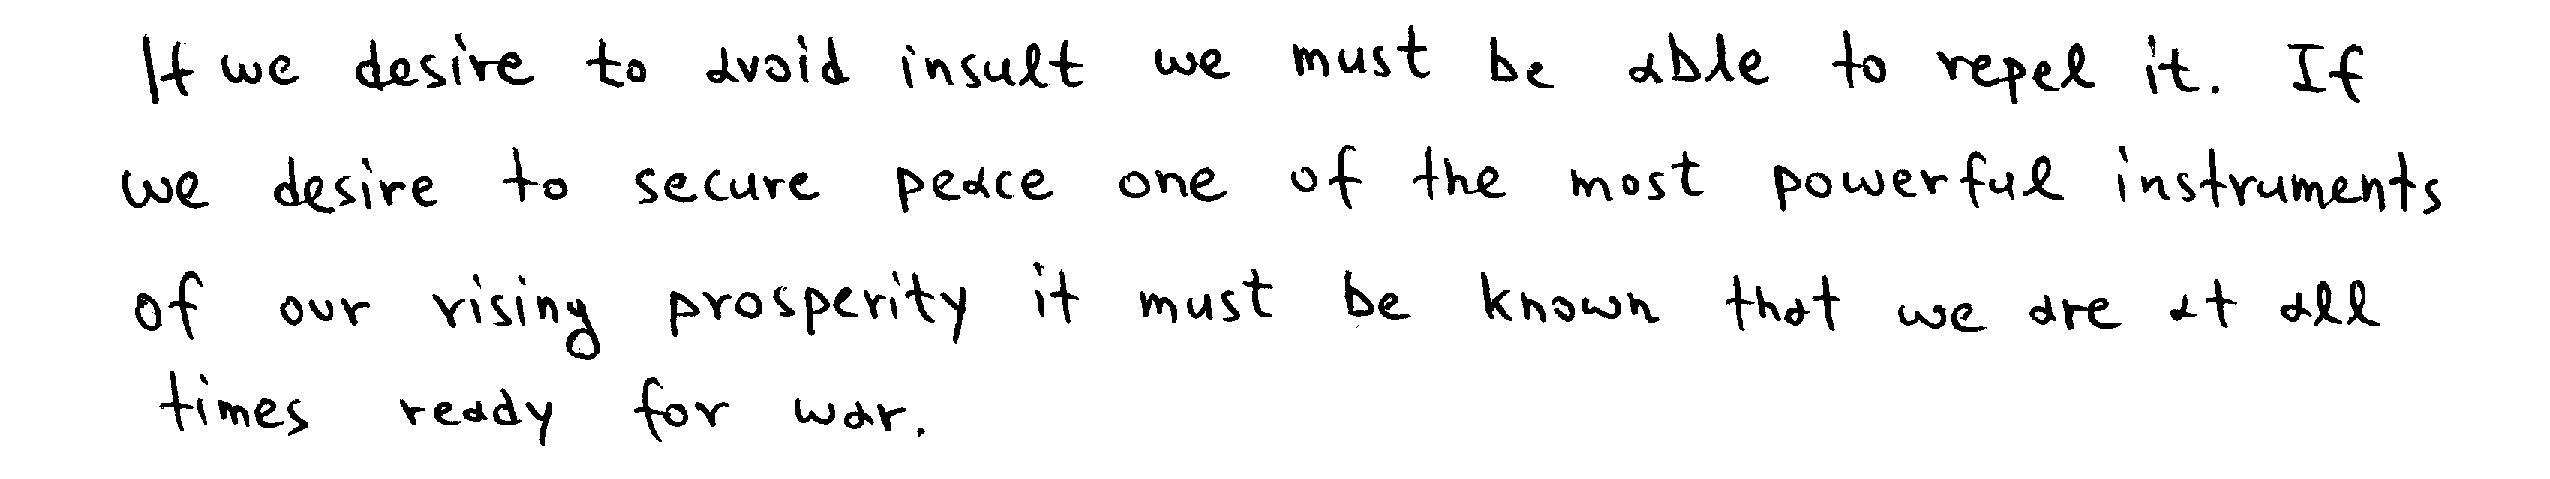 If we desire to avoid insult we must be able to repel it. If
we desire to secure peace one of the most powerful instruments
of our rising prosperity it must be known that we are at all
times ready for war.